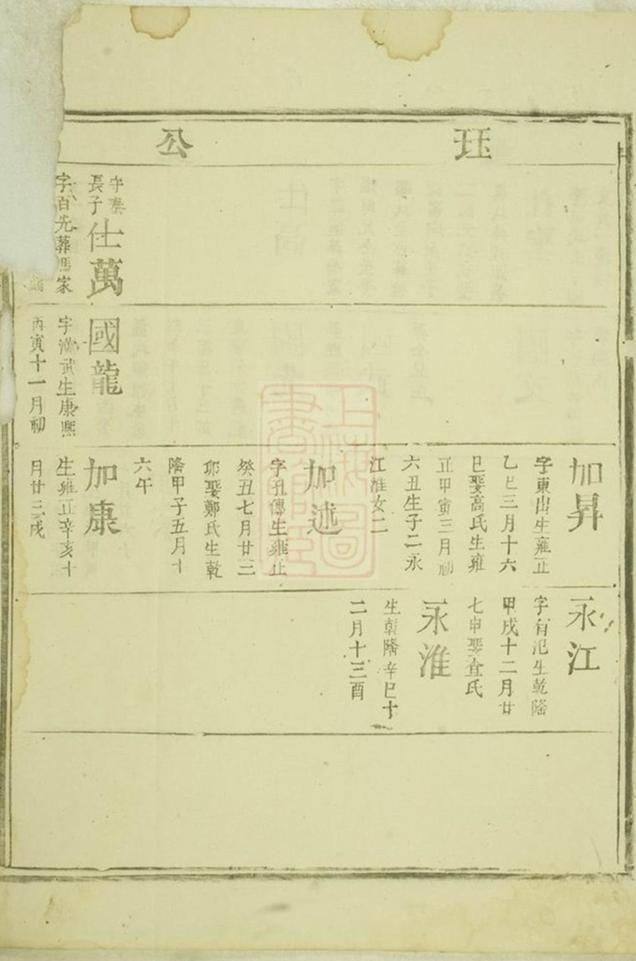 珏公
長子仕萬
字百先葬馮家
國龍
字漢黃生康熙
丙寅十一月初
加昇
字東出生雍正
乙巳三月十六
巳娶高氏生雍
正甲寅三月初
六丑生子二永
江淮女二
加述
字孔傳生雍正
癸丑七月廿三
卯娶鄭氏生乾
隆甲子五月十
六午
加康
生雍正辛亥十
月廿三戌
永江
生乾隆
甲戌十二月廿
七申娶查氏
永淮
生乾隆辛巳十
二月十三酉
上海圖書館藏